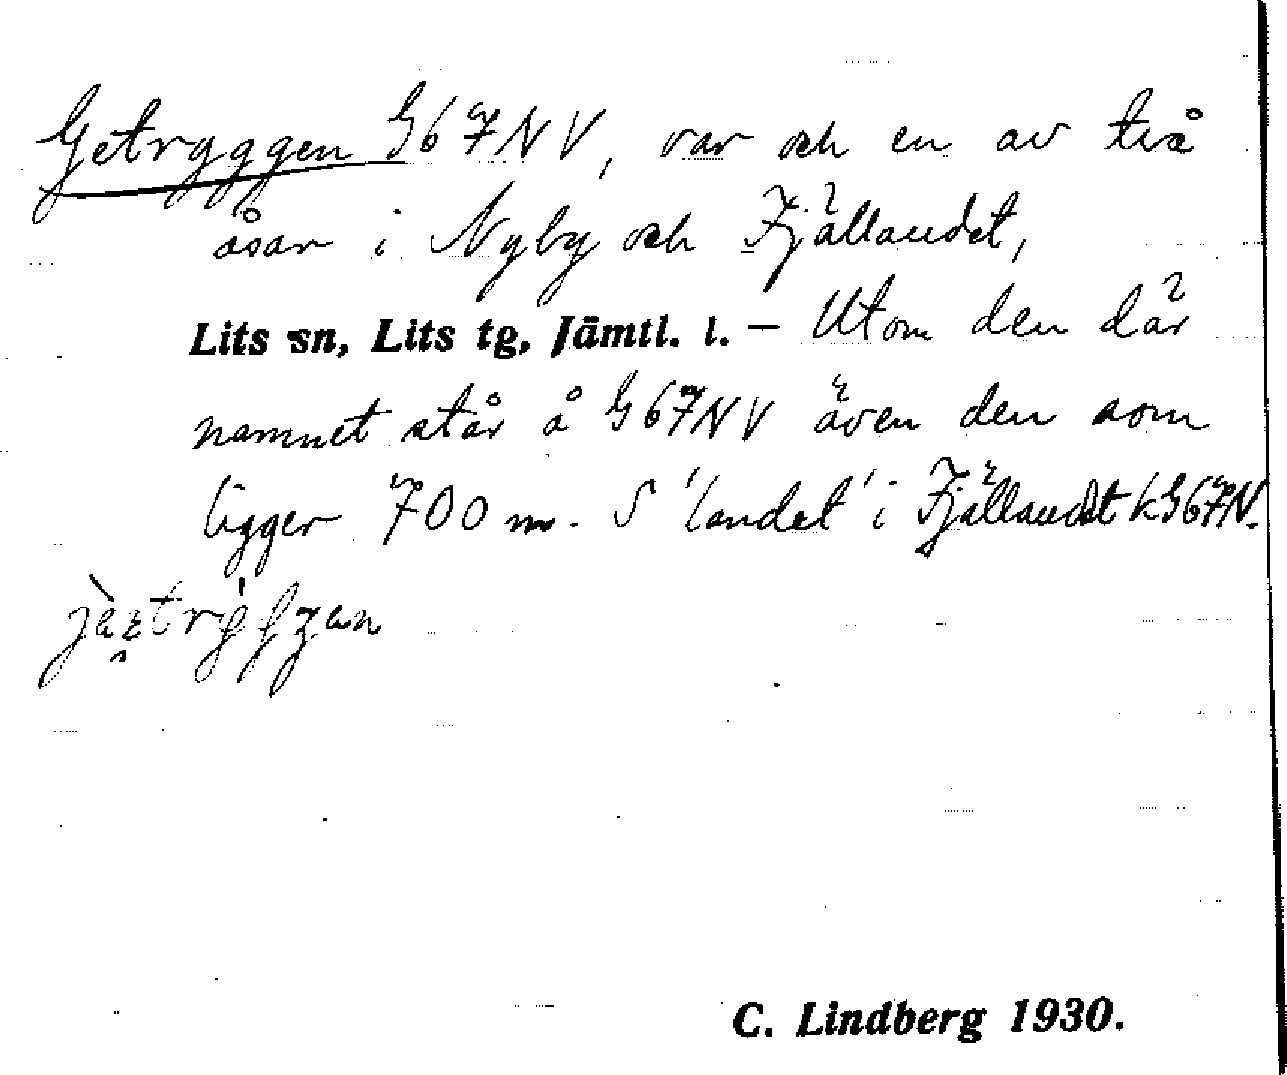 Getryggen G67NV, var och en av två
åsar i Nyby och Fjällandet,
Lits sn, Lits tg, Jämtl. l. – Utom den där
namnet står å G67NV även den som
ligger 700 m. S 'landet' i Fjällandet k G67N.
C. Lindberg 1930.